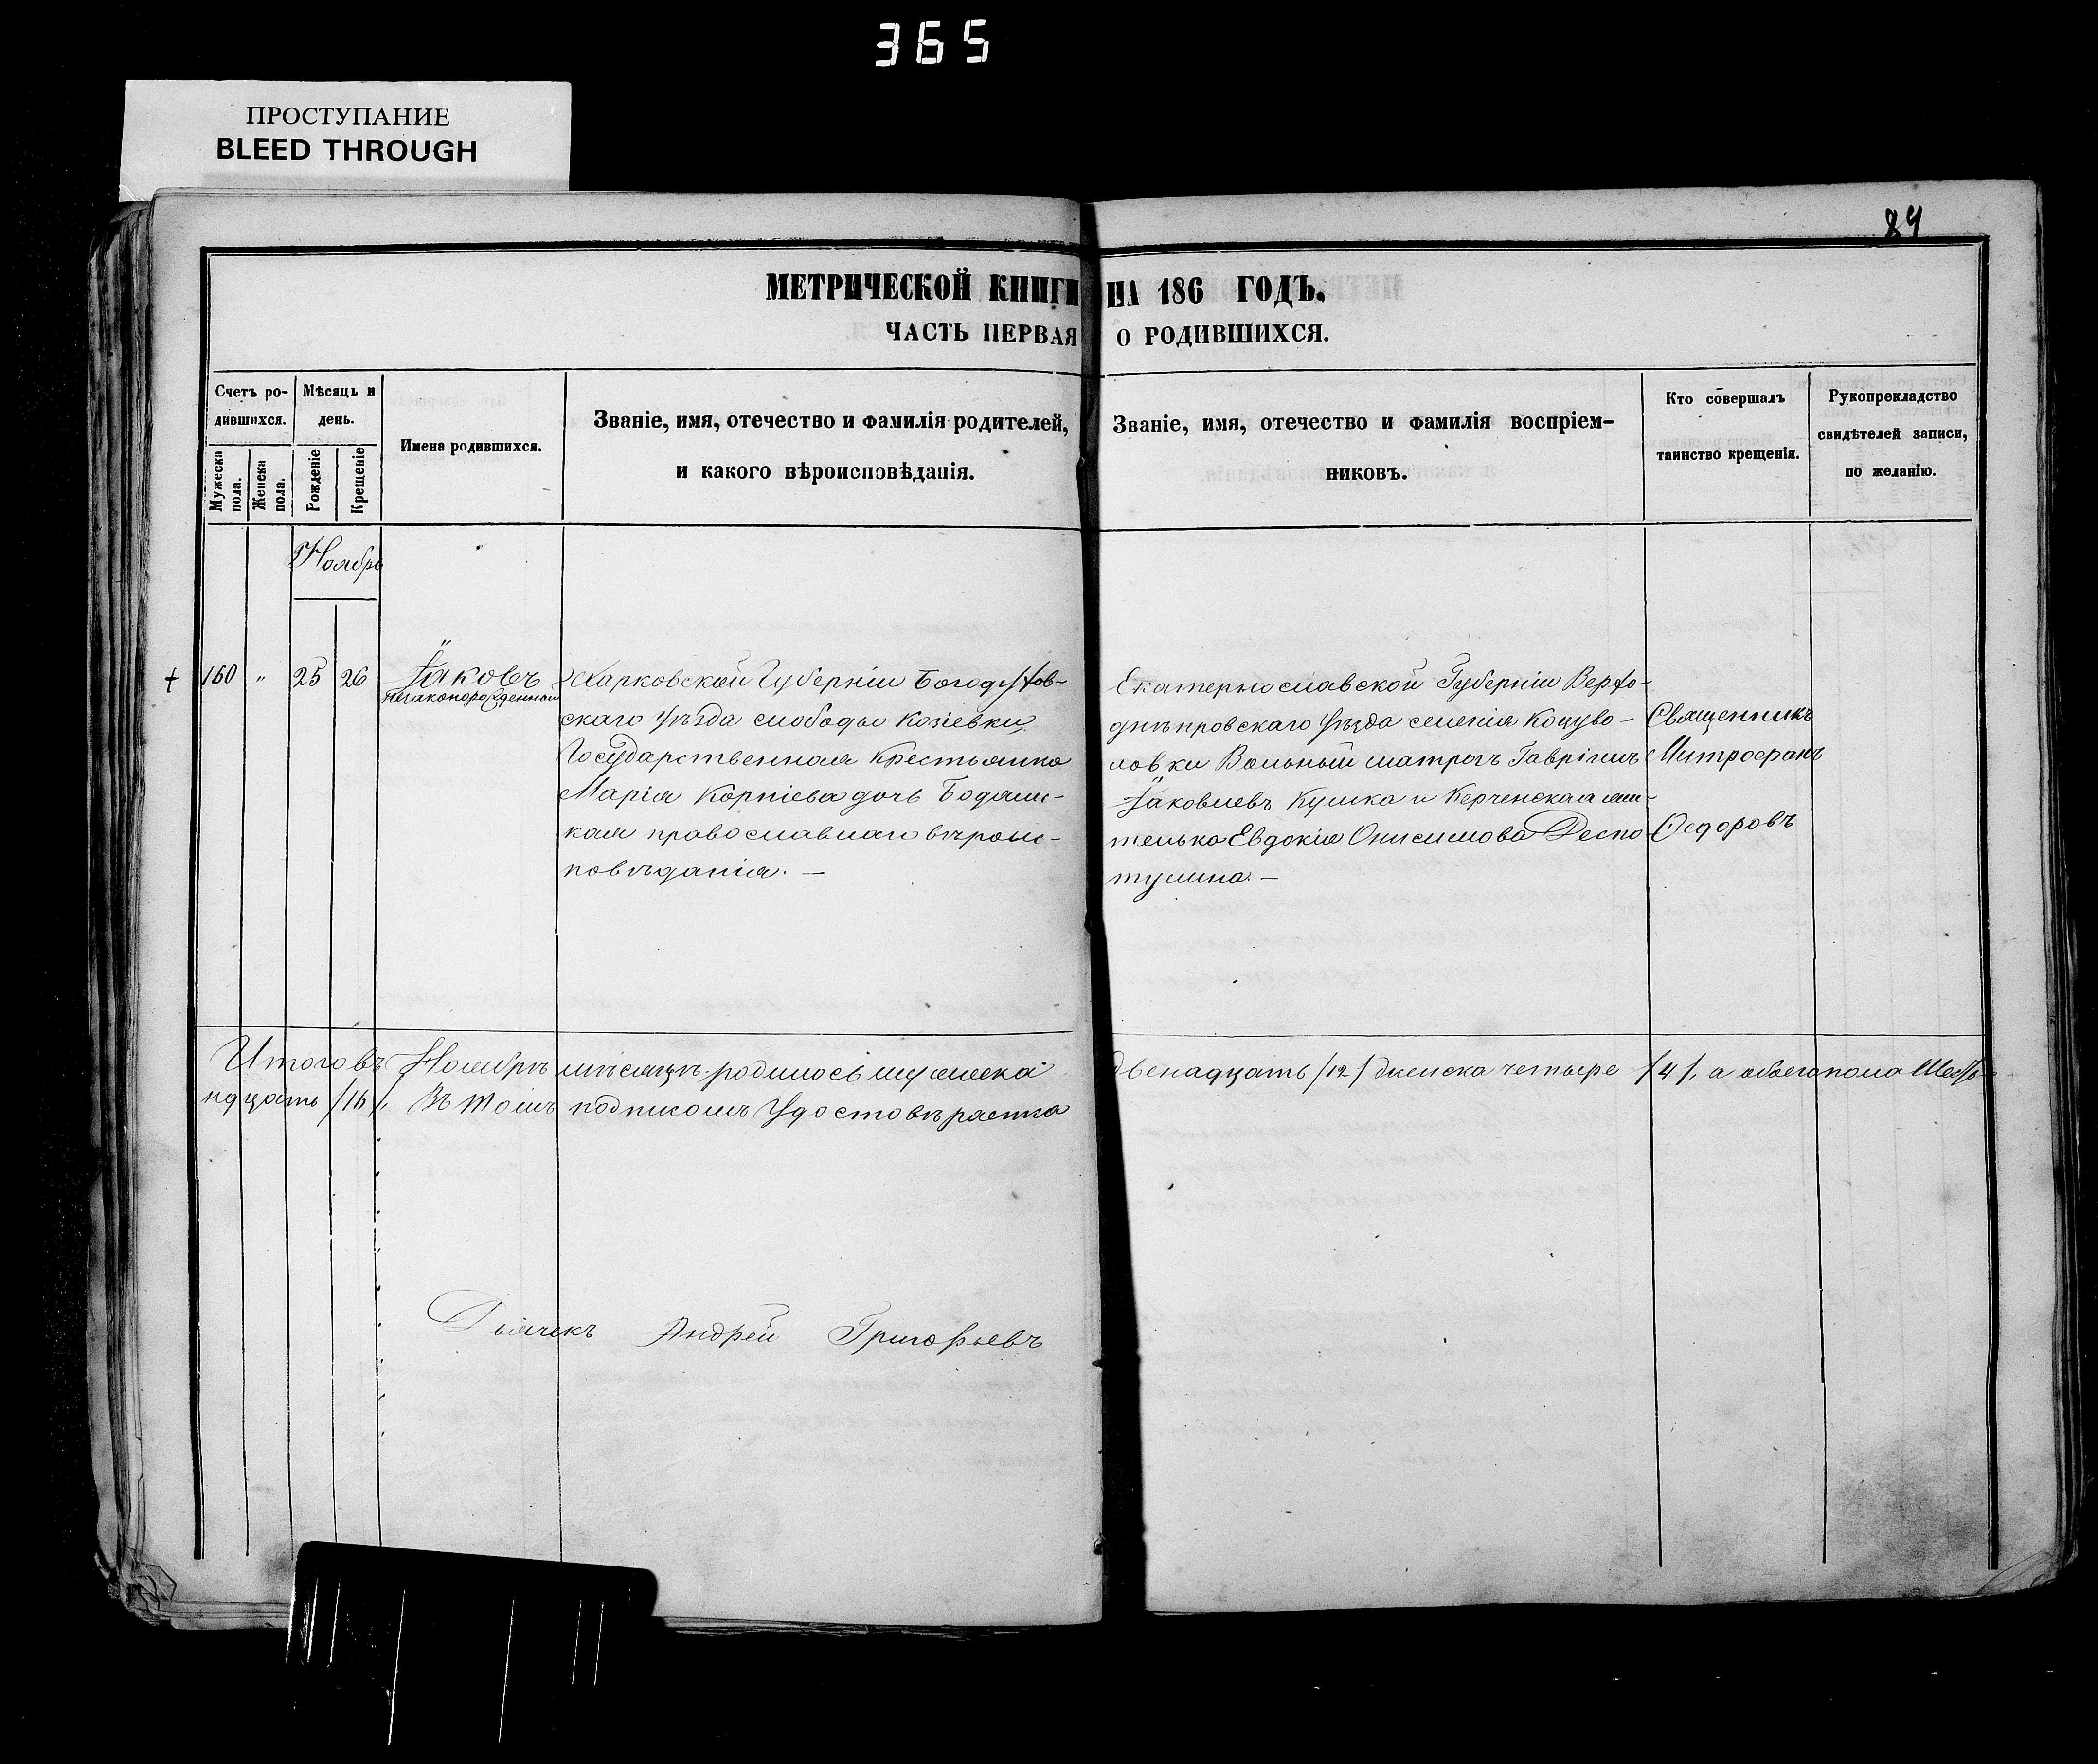 365
ПРОСТУПАНИЕ
BLEED THROUGH
89
МЕТРИЧЕСКОЙ КНИГИ НА 186 ГОДЪ.
ЧАСТЬ ПЕРВАЯ О РОДИВШИХСЯ.
Счетъ ро-
дившихся.
Мужеска
пола.
Женска
пола.
Мѣсяцъ и
день.
Рожденіе
Крещеніе
Имена родившихся.
Званіе, имя, отечество и фамилія родителей,
и какого вѣроисповѣданія.
Званіе, имя, отечество и фамилія воспріем-
никовъ.
Кто совершалъ
таинство крещенія.
Рукоприкладство
свидѣтелей записи,
по желанію.
Ноябрь
160 " 25 26
Іаковъ
незаконорожденный
Харковской Губерніи Богодухов-
скаго Уѣзда слободы Козіевки
Государственная Крестьянка
Марія Корніева дочь
православнаго вѣроис-
повѣданія. —
Екатеринославской Губерніи Верхо-
днѣпровскаго Уѣзда селенія Коцуво-
ловки Вольный матросъ Гавріилъ
Іаковлевъ Кушка и Керченская жи-
телька Евдокія Онисимова Деспо-
тулина. —
Священникъ
Митрофанъ
Ѳедоровъ
Итого въ Ноябрѣ мѣсяцѣ родилось мужеска двенадцать /12/ женска четыре /4/, а обоего пола Шест-
надцать /16/. Въ томъ подписомъ Удостовѣряетъ
Дьячекъ Андрей Григорьевъ